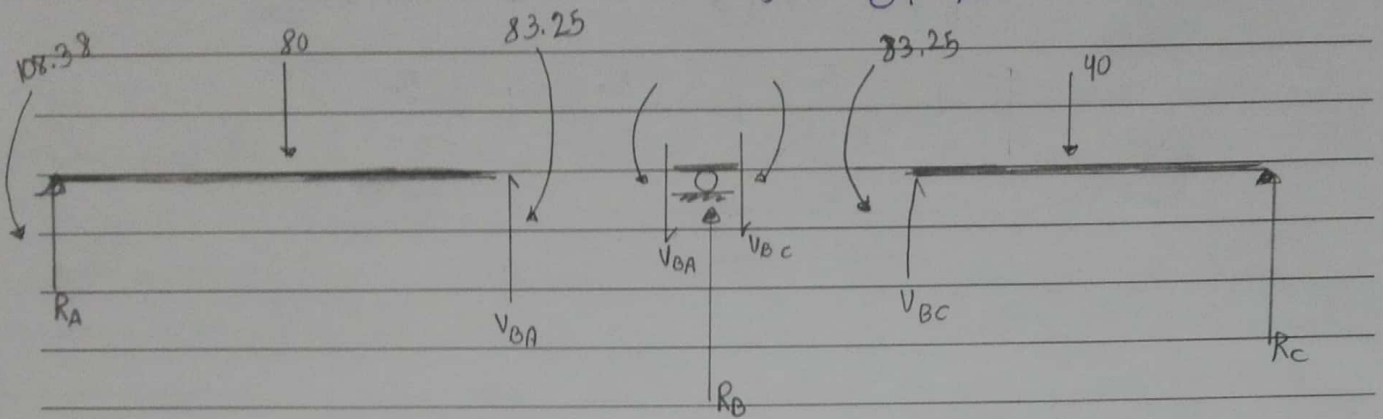 108.38 80 83.25 83.25 40
V_BA V_BC
R_A V_BA V_BC
R_C
R_B